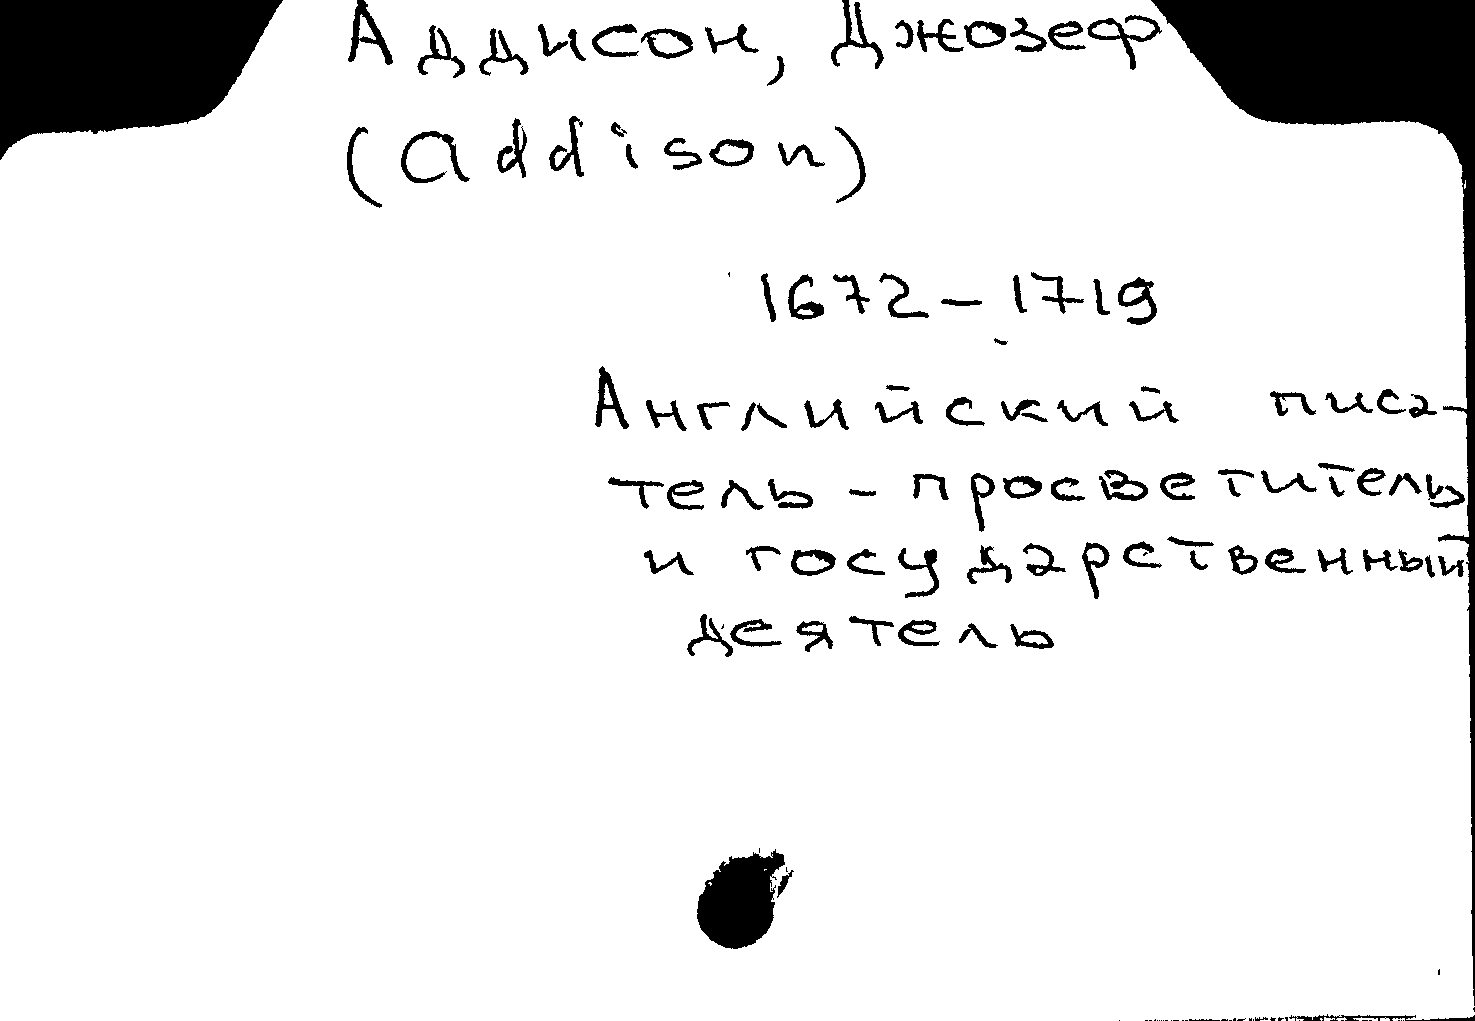 Аддисон, Джозеф
(Addison)
1672-1719
Английский писа-
тель-просветитель
и государственный
деятель